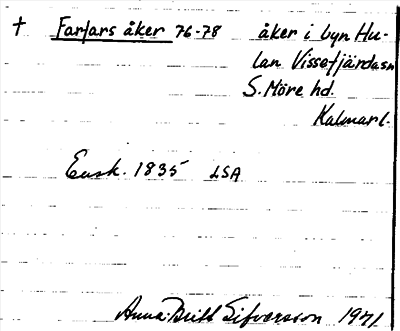 † Farfars åker 76-78 åker i byn Hu-
lan Vissefjärda sn
S. Möre hd.
Kalmar l.
Ensk. 1835 LSA
Anna-Britt Sifversson 1971